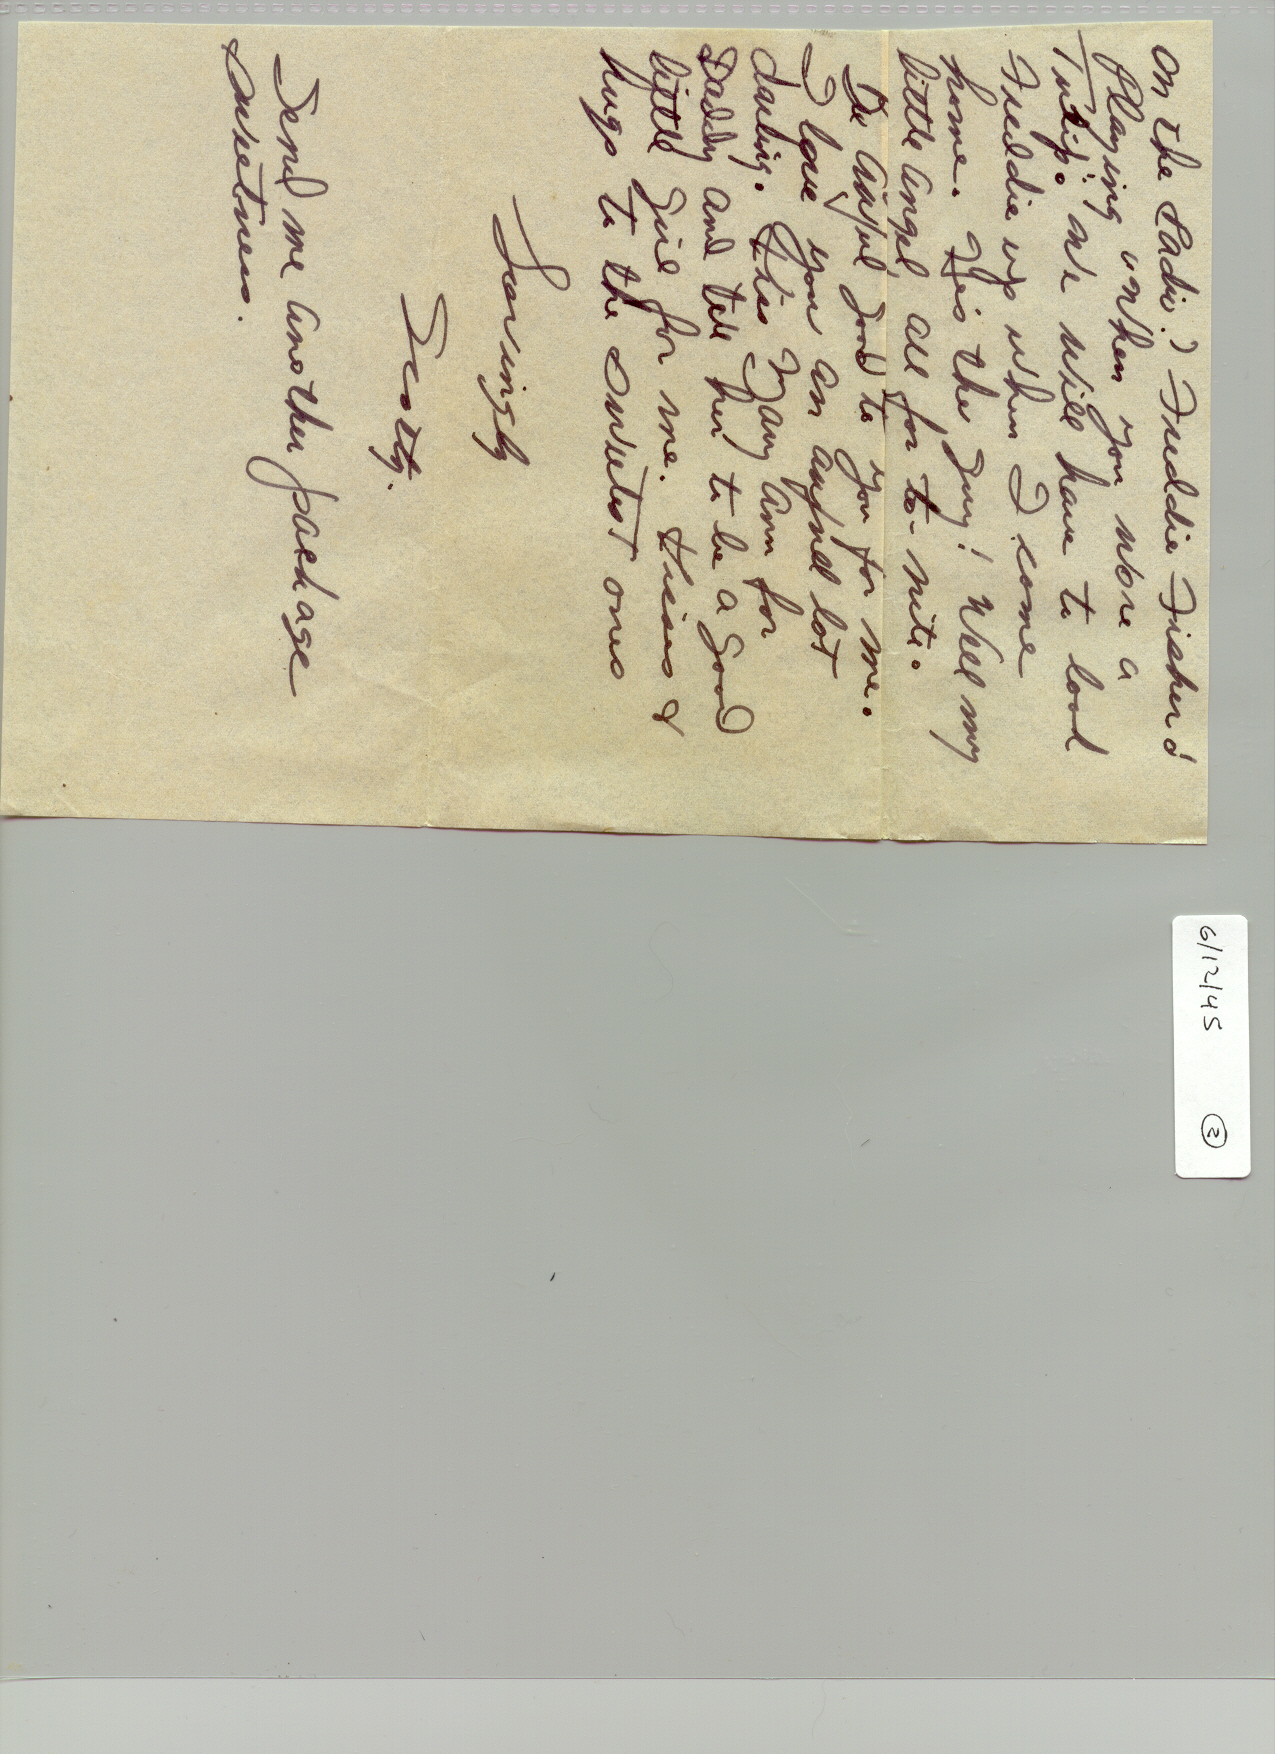 on the radio.) Freddie Fisher's
playing "When you wore a
Tulip". We will have to look
Freddie up when I come
home. He's the guy! Well my
little angel, all for to-nite.
Be awful good to you for me.
I love you an awful lot
darling. Kiss Mary Ann for
Daddy and tell her to be a good
little girl for me. Kisses &
hugs to the sweetest ones
Lovingly
Scotty.
Send me another package
sweetness.
6/12/45 ②